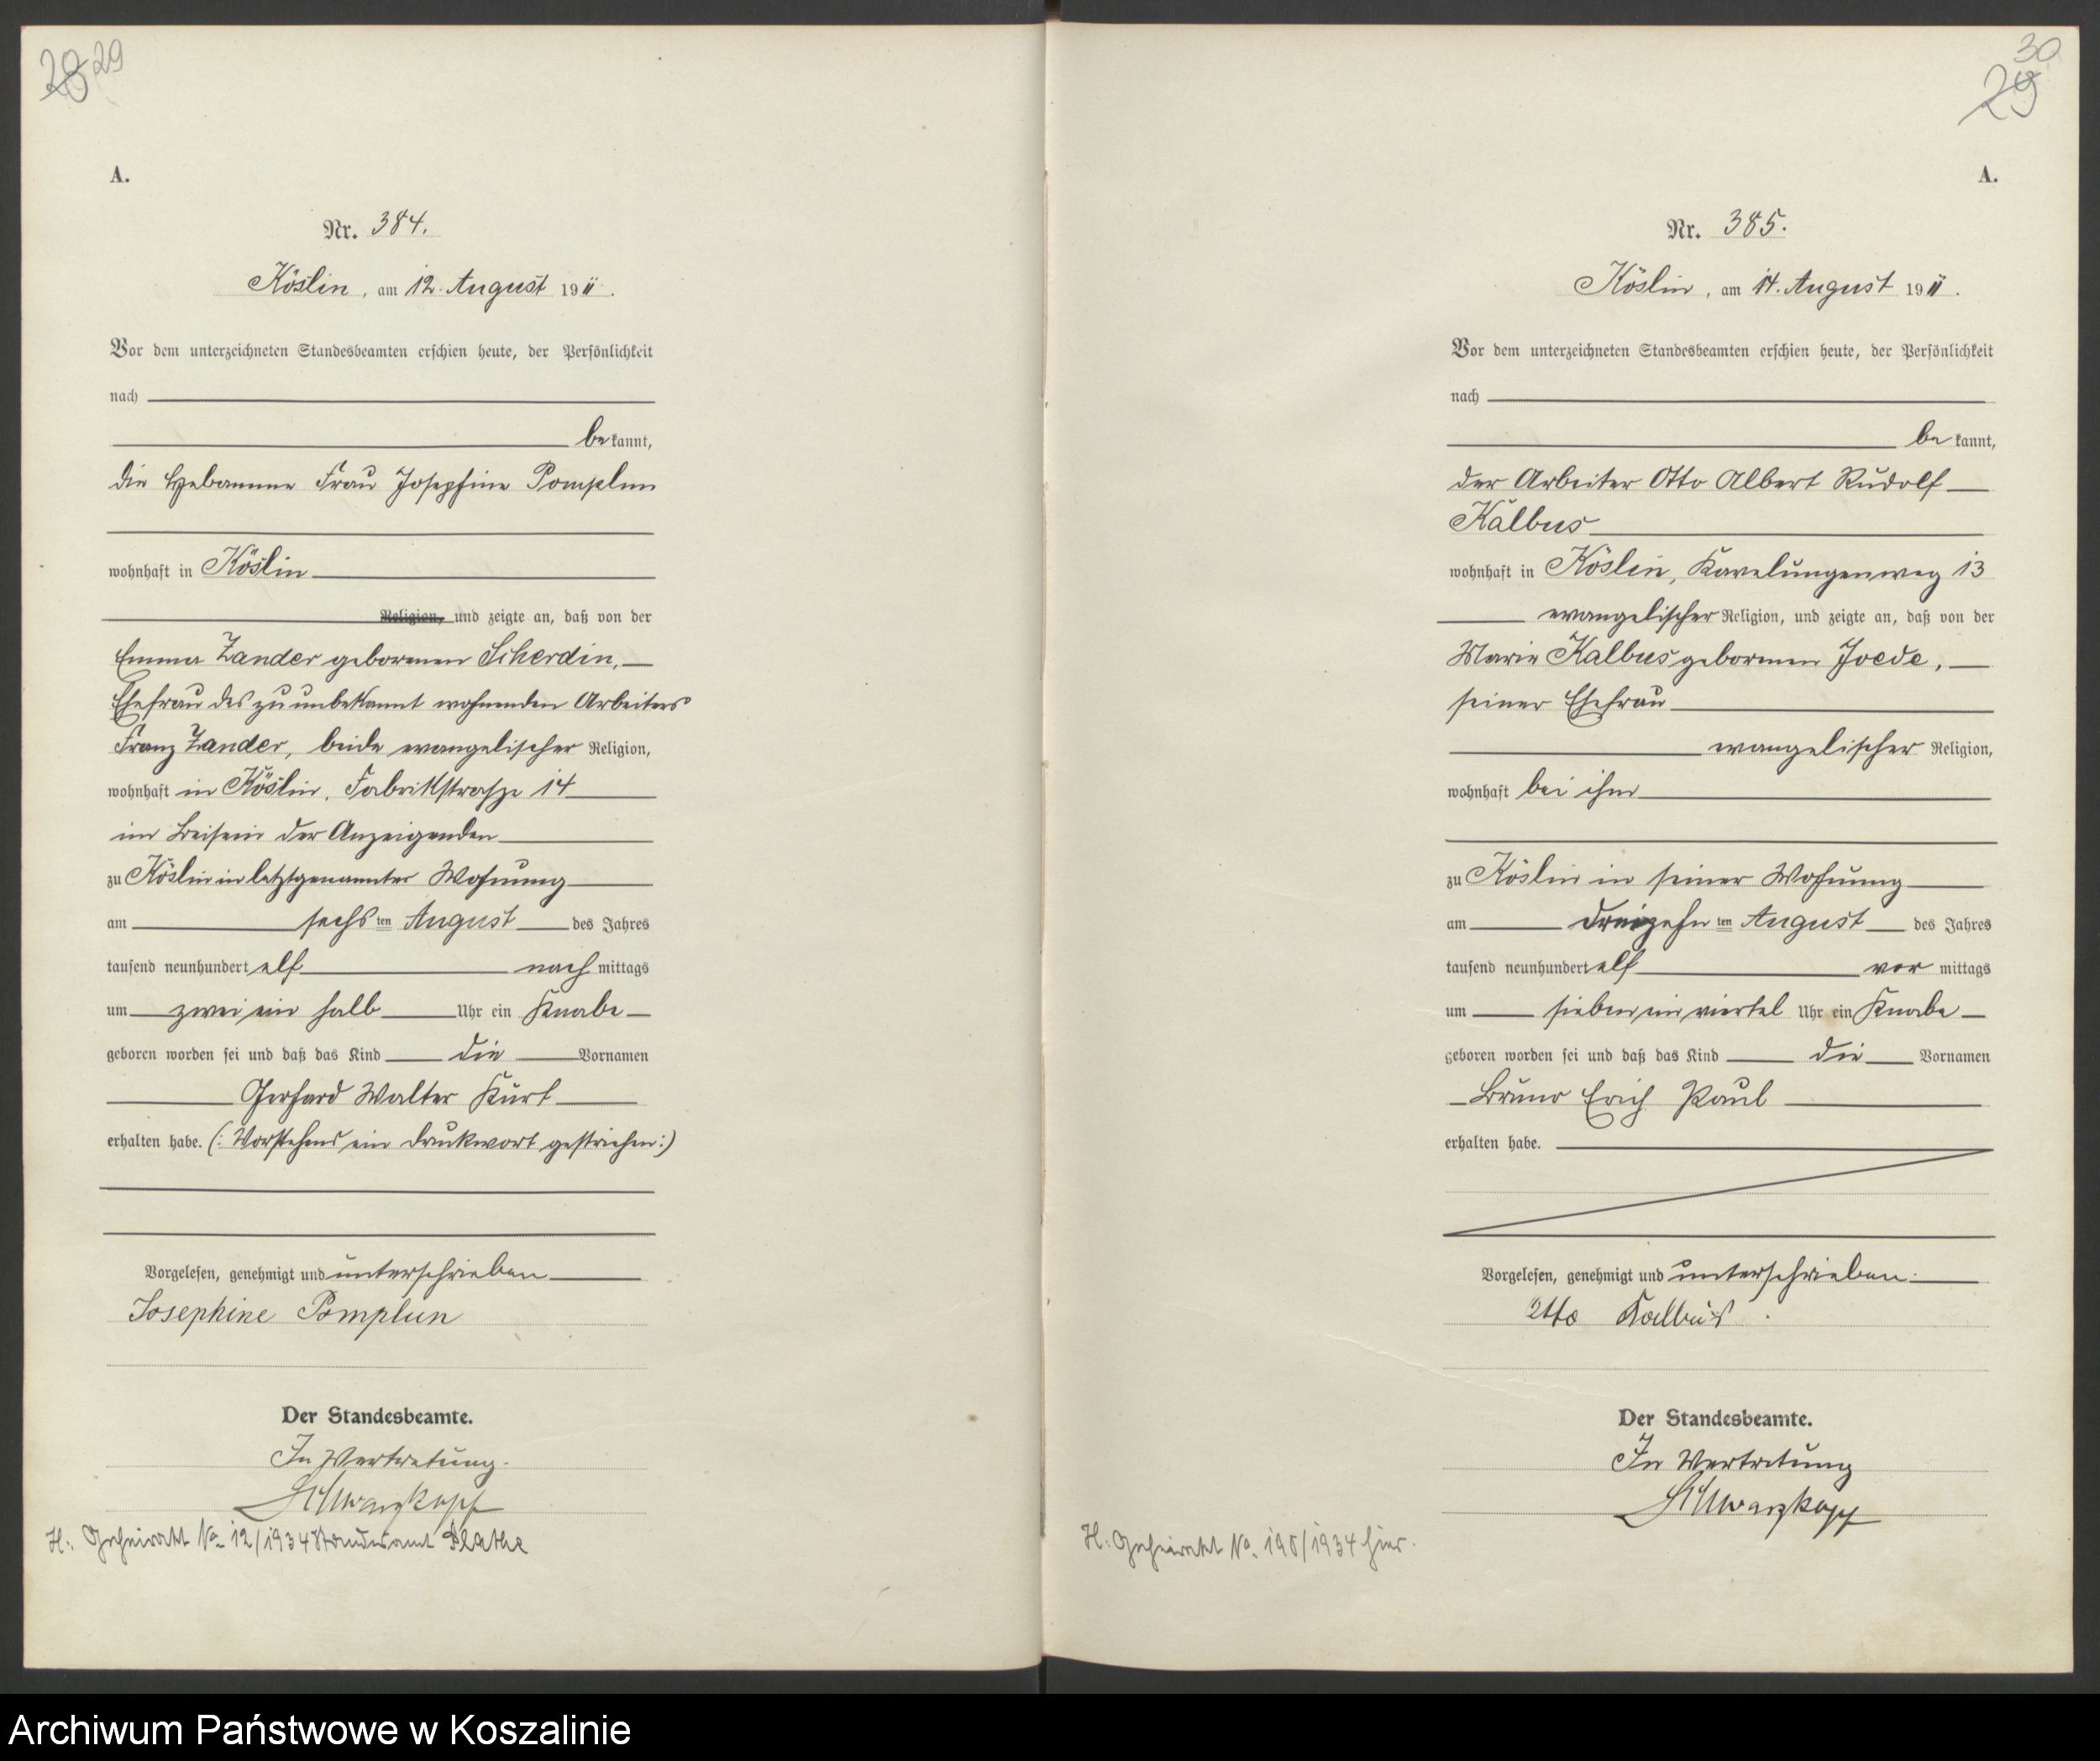 28 29
A.
Nr. 384.
Köslin, am 12. August 1911.
Vor dem unterzeichneten Standesbeamten erschien heute, der Persönlichkeit
nach
bekannt,
die Hebamme Frau Josephine Pomplun
wohnhaft in Köslin
Religion, und zeigte an, daß von der
Emma Zander geborenen Scherdin,
Ehefrau des zu unbekannt wohnenden Arbeiters
Franz Zander, beide evangelischer Religion,
wohnhaft in Köslin, Fabrikstraße 14
im Beisein der Anzeigenden
zu Köslin in letztgenannter Wohnung
am sechsten August des Jahres
tausend neunhundert elf nachmittags
um zwei ein halb Uhr ein Knabe
geboren worden sei und daß das Kind die Vornamen
Gerhard Walter Kurt
erhalten habe. (: Vorstehend ein Druckwort gestrichen :)
Vorgelesen, genehmigt und unterschrieben
Josephine Pomplun
Der Standesbeamte.
In Vertretung.
Schwarzkopf
H.: Geheiratet No 12/1934 Standesamt Plathe
30
29
A.
Nr. 385.
Köslin, am 14. August 1911.
Vor dem unterzeichneten Standesbeamten erschien heute, der Persönlichkeit
nach
bekannt,
der Arbeiter Otto Albert Rudolf
Kalbus
wohnhaft in Köslin, Kavelungenweg 13
evangelischer Religion, und zeigte an, daß von der
Marie Kalbus geborenen Joede,
seiner Ehefrau
evangelischer Religion,
wohnhaft bei ihm
zu Köslin in seiner Wohnung
am dreizehnten August des Jahres
tausend neunhundert elf vormittags
um sieben ein viertel Uhr ein Knabe
geboren worden sei und daß das Kind die Vornamen
Bruno Erich Paul
erhalten habe.
Vorgelesen, genehmigt und unterschrieben.
Otto Kalbus
Der Standesbeamte.
In Vertretung
Schwarzkopf
H: Geheiratet No. /1934 hier.
Archiwum Państwowe w Koszalinie